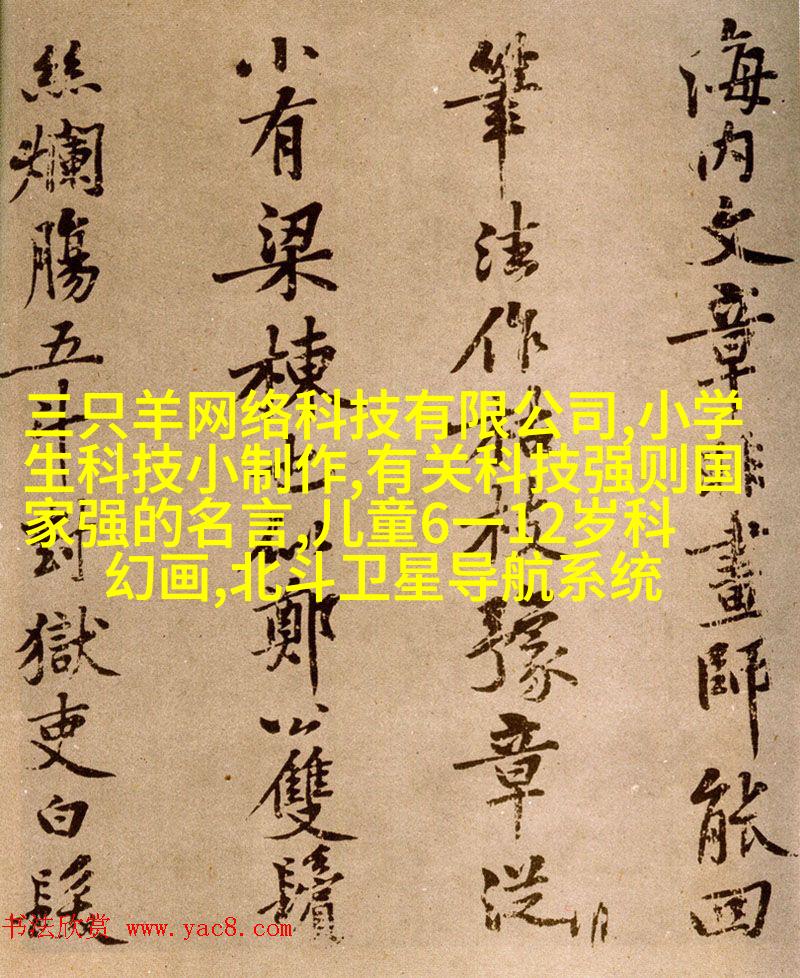 海内文章非畫師能回
筆法作枯枝豫章從
小有梁棟也似鄭公雙鬢
絲爛腸五斗對獄吏白髮
三只羊网络科技有限公司,小学
生科技小制作,有关科技强则国
家强的名言,儿童6一12岁科
幻画,北斗卫星导航系统
书法欣赏 www.yac8.com